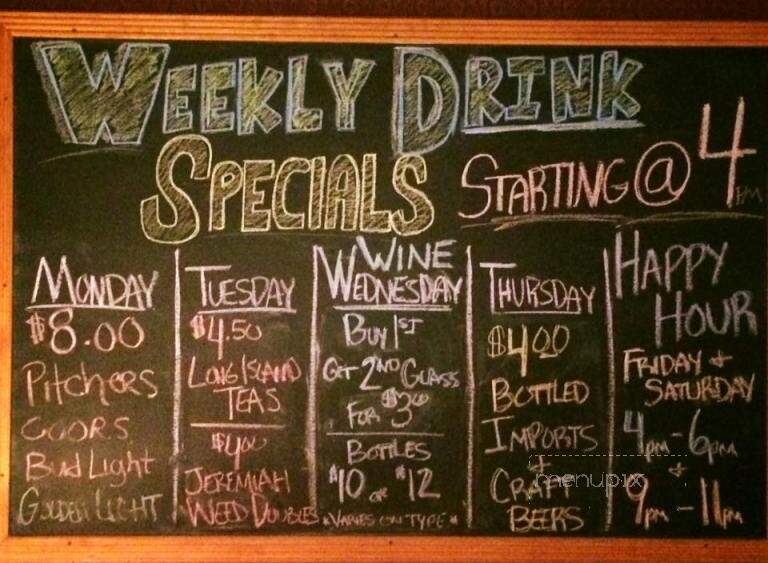 WEEKLY DRINK
SPECIALS STARTING @ 4PM
MONDAY
$8.00
PITCHERS
COORS
BUD LIGHT
GOLDEN LIGHT
TUESDAY
$4.50
LONG ISLAND
TEAS
$4.00
JEREMIAH
WEED DOUBLES
WINE
WEDNESDAY
BUY 1ST
GET 2ND GLASS
FOR $3.00
BOTTLES
$10 OR $12
*VARIES ON TYPE*
THURSDAY
$4.00
BOTTLED
IMPORTS
&
CRAFT
BEERS
HAPPY
HOUR
FRIDAY &
SATURDAY
4PM-6PM
&
9PM-11PM
menupix